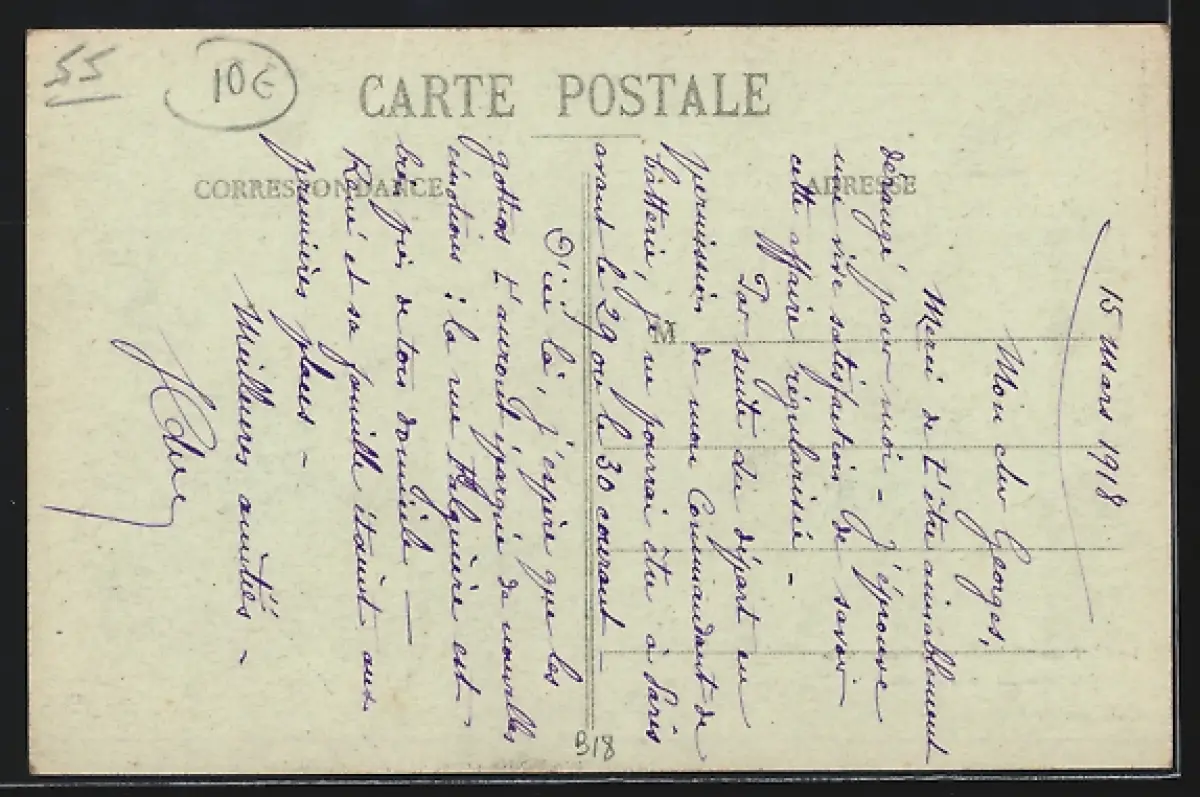 55
10€
CARTE POSTALE
CORRESPONDANCE
ADRESSE
M
B18
15 Mars 1918
Mon cher Georges,
Merci de t'être aimablement
dérangé pour moi - J'éprouve
une vive satisfaction de savoir
cette affaire régularisée -
Par suite du départ en
permission de mon Commandant de
batterie, je ne pourrai être à Paris
avant le 29 ou le 30 courant -
D'ici là, j'espère que les
gothas t'auront épargné de nouvelles
émotions : la rue Falguière est
bien près de ton domicile -
René et sa famille étaient aux
premières places -
Meilleures amitiés -